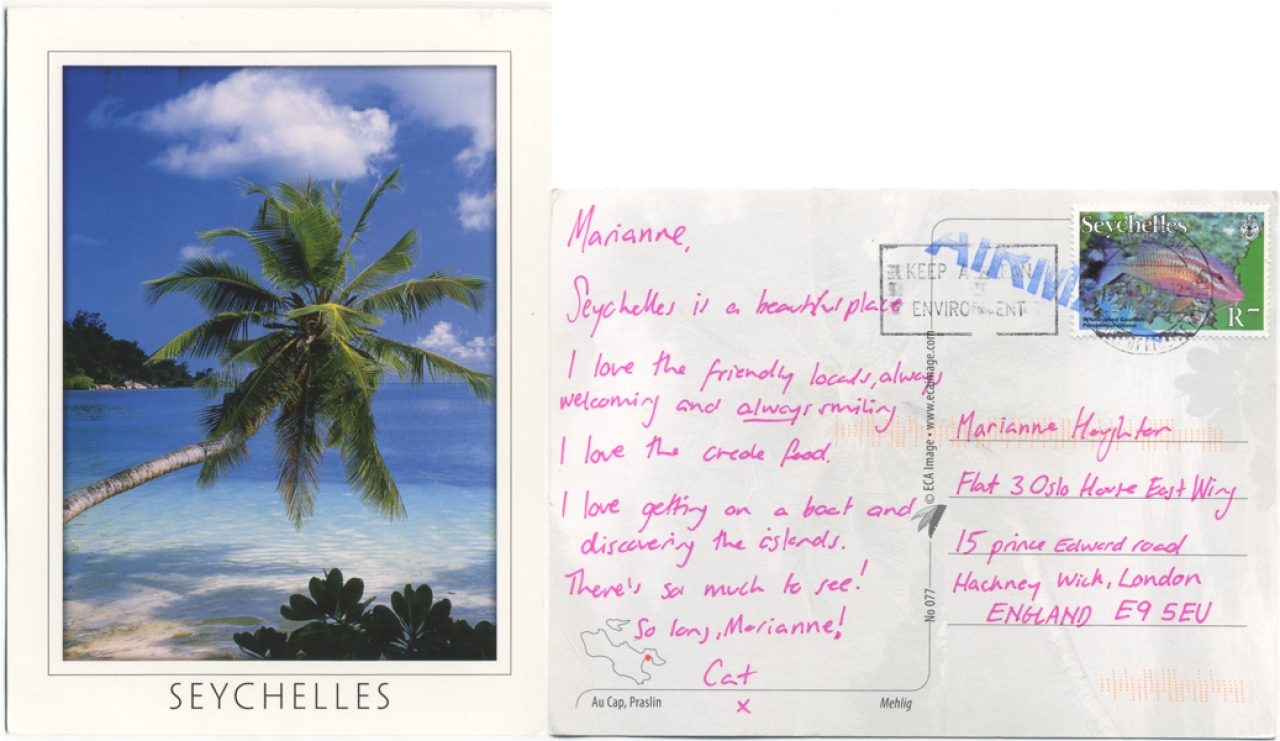 SEYCHELLES
Marianne,
Seychelles is a beautiful place
I love the friendly locals, always
welcoming and always smiling
I love the creole food.
I love getting on a boat and
discovering the islands.
There's so much to see!
So long, Marianne!
Cat
x
Au Cap, Praslin
Mehlig
No 077
© ECA Image • www.ecaimage.com
KEEP A
ENVIRONMENT
AIRM
Seychelles
R7
Marianne
Flat 3 Oslo House East Wing
15 prince Edward road
Hackney Wick, London
ENGLAND E9 5EU